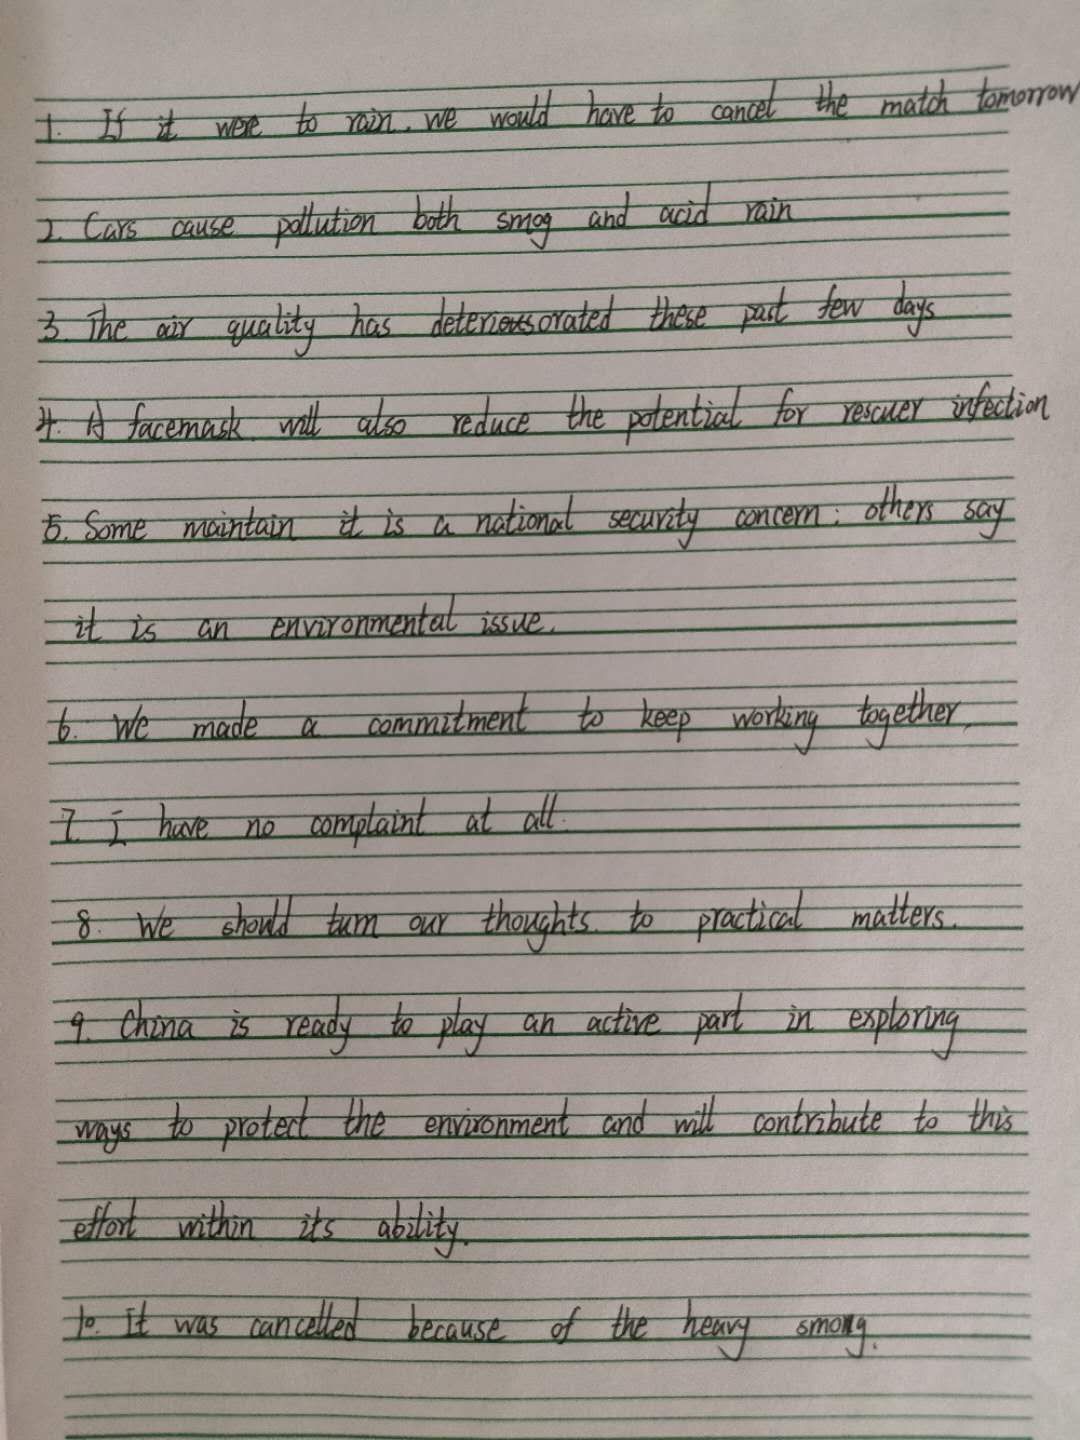 1. If it were to rain, we would have to cancel the match tomorrow
2. Cars cause pollution both smog and acid rain
3. The air quality has deteriorated these past few days
4. A facemask will also reduce the potential for rescuer infection
5. Some maintain it is a national security concern: others say
it is an environmental issue.
6. We made a commitment to keep working together.
7. I have no complaint at all.
8. We should turn our thoughts to practical matters.
9. China is ready to play an active part in exploring
ways to protect the environment and will contribute to this
effort within its ability.
10. It was cancelled because of the heavy smog.